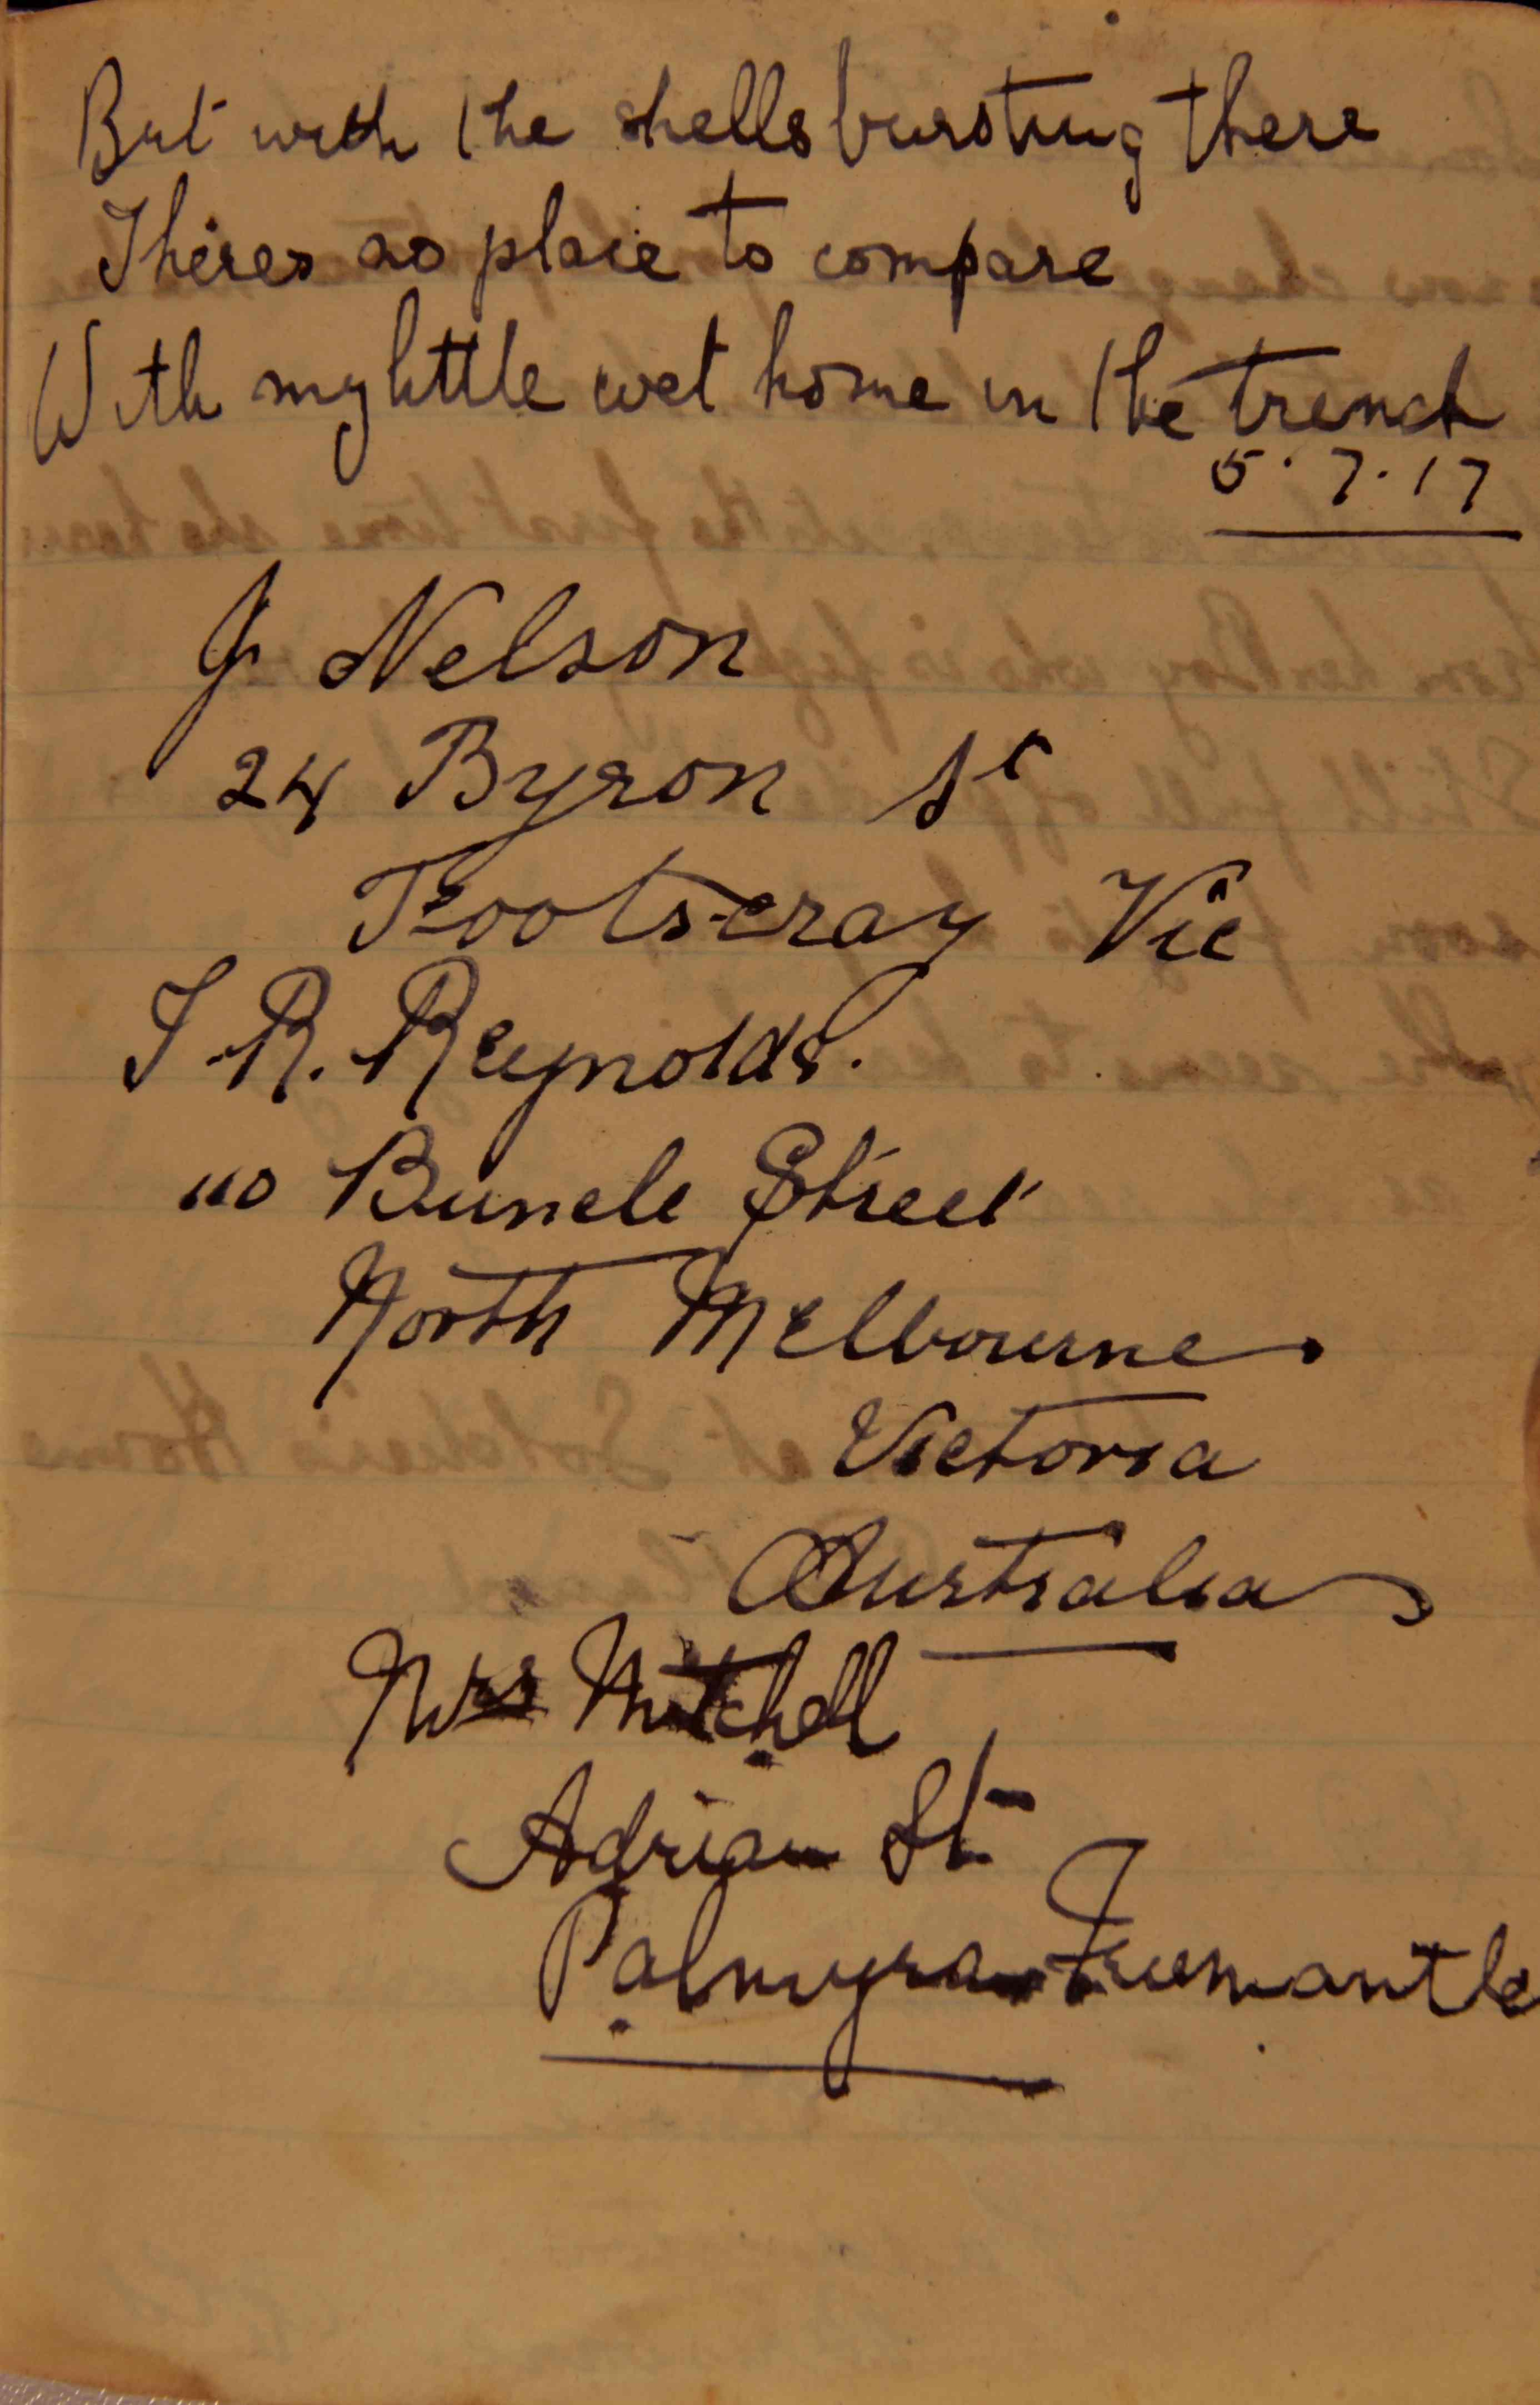 But with the shells bursting there
Theres no place to compare
With my little wet home in the trench
5.7.17
J Nelson
24 Byron St
Footscray Vic
J R. Reynolds.
110 Buncle Street
North Melbourne.
Victoria
Australia
Mrs Mitchell
Adrian St
Palmyra Fremantle